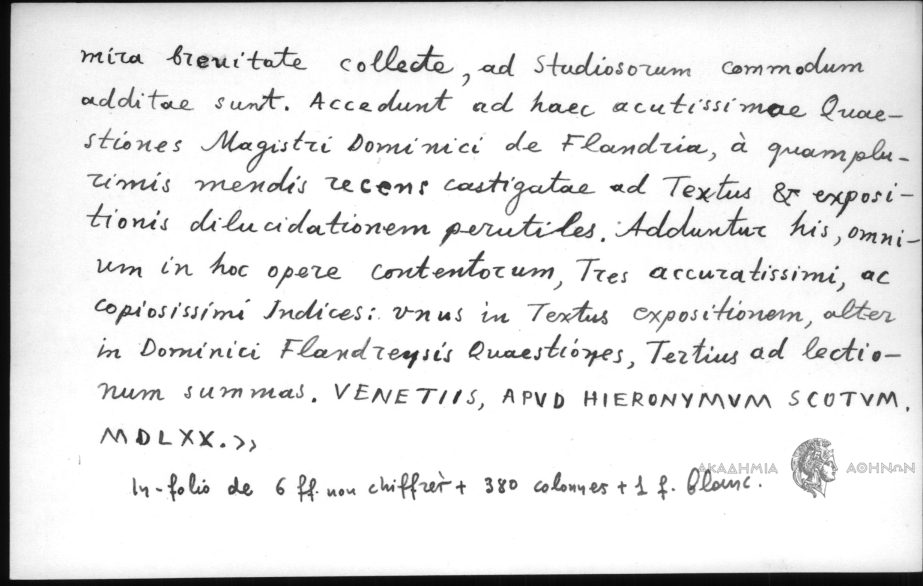 mira breuitate collecte, ad Studiosorum commodum
additae sunt. Accedunt ad haec acutissimae Quae-
stiones Magistri Dominici de Flandria, à quamplu-
rimis mendis recens castigatae ad Textus & exposi-
tionis dilucidationem perutiles. Adduntur his, omni-
um in hoc opere contentorum, Tres accuratissimi, ac
copiosissimi Indices: vnus in Textus expositionem, alter
in Dominici Flandreysis Quaestiones, Tertius ad lectio-
num summas. VENETIIS, APVD HIERONYMVM SCOTVM.
MDLXX.»
ΑΚΑΔΗΜΙΑ ΑΘΗΝΩΝ
In-folio de 6 ff. non chiffrèr + 380 colonnes + 1 f. blanc.